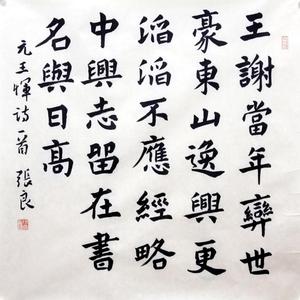 王謝當年世
豪東山逸興更
滔滔不應經略
中興志留在書
名與日高
元王惲诗一首 張良